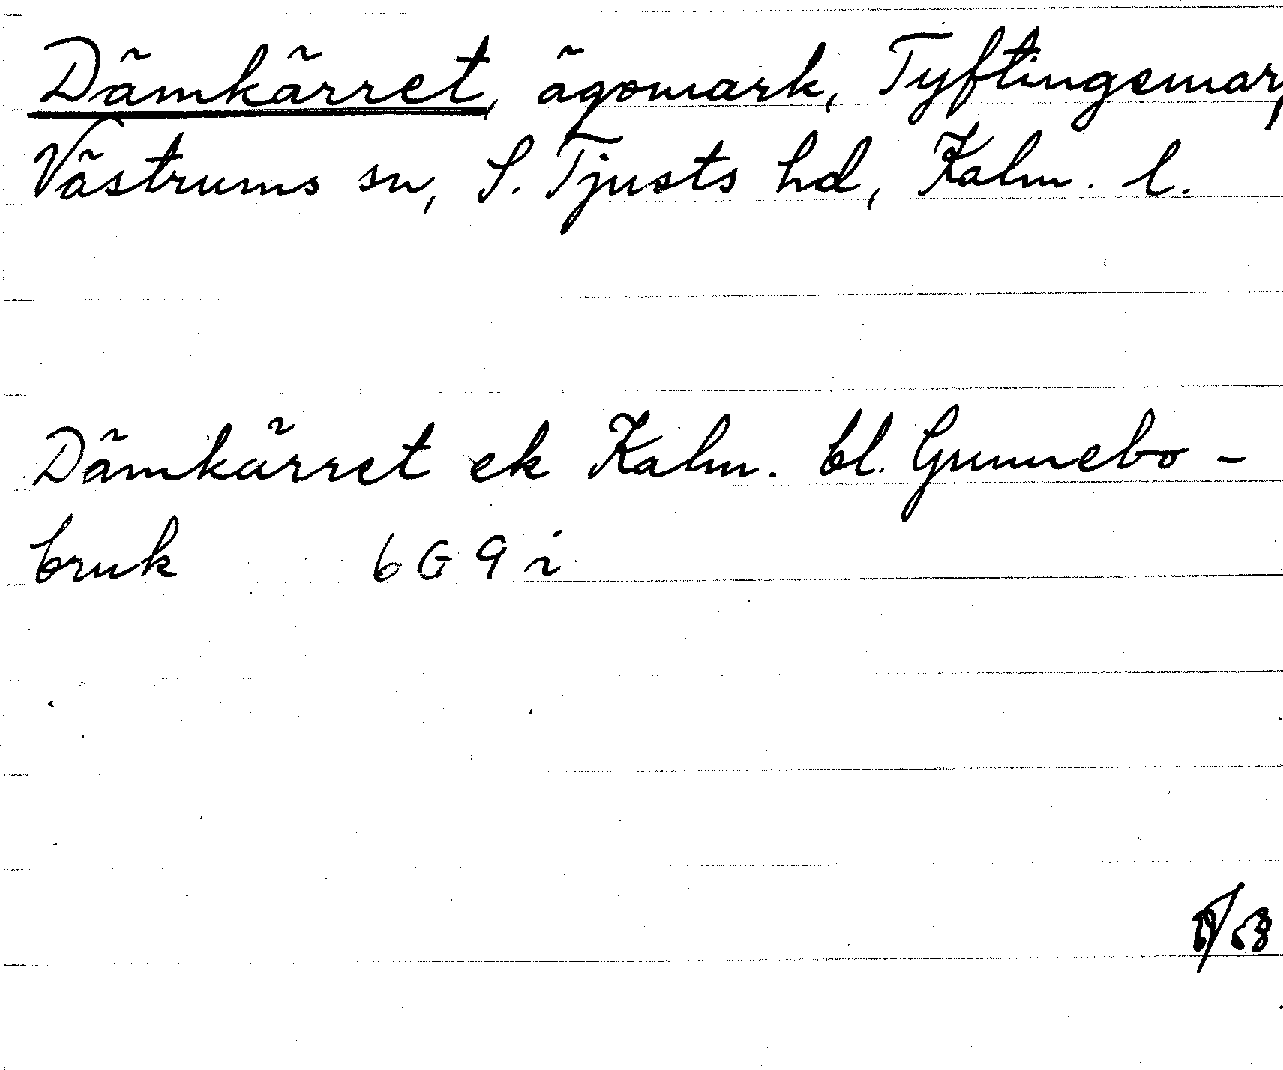 Dämkärret, ägomark, Tyftingemar,
Västrums sn, S. Tjusts hd, Kalm. l.
Dämkärret ek Kalm. bl. Gunnebo-
bruk 6G 9i